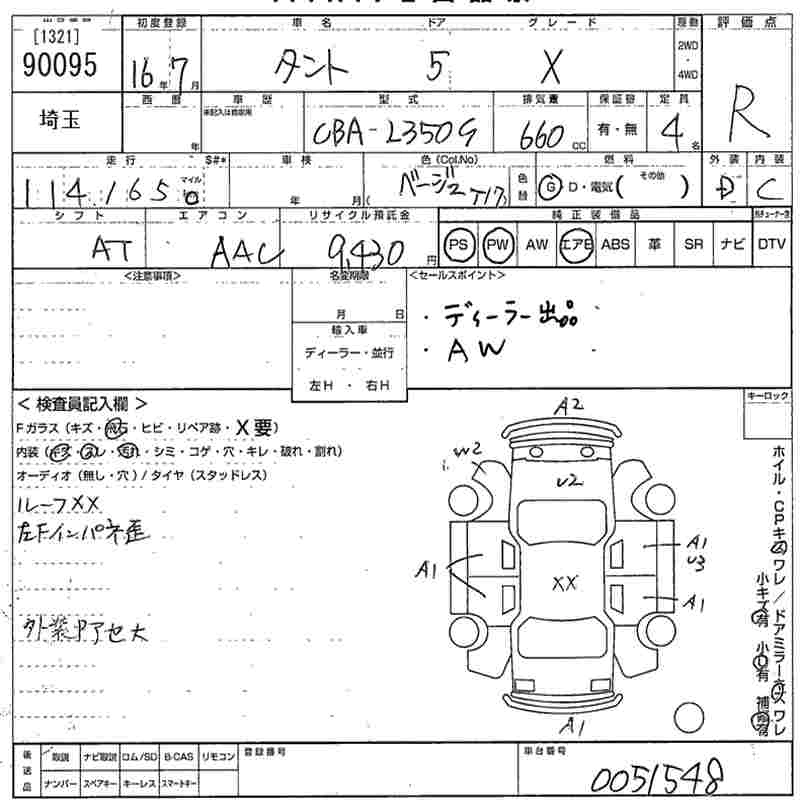 [1321]
90095
初度登録
16年7月
車名
タント
ドア
5
グレード
X
駆動
2WD
・
4WD
評価点
R
埼玉
西暦
年
車歴
未記入は自家用
型式
CBA-L350S
排気量
660cc
保証書
有・無
定員
4名
走行
114165
マイル
S#*
車検
年 月(
色(Col.No)
ベージュT17)
色替
燃料
G D・電気( その他 )
外装
D
内装
C
シフト
AT
エアコン
AAC
リサイクル預託金
9,430円
純正装備品
PS PW AW エアB ABS 革 SR ナビ DTV
<注意事項>
名変期限
月 日
輸入車
ディーラー・並行
左H ・ 右H
<セールスポイント>
・ディーラー出品
・AW
<検査員記入欄>
Fガラス(キズ・飛石・ヒビ・リペア跡・X要)
内装(キズ・スレ・汚れ・シミ・コゲ・穴・キレ・破れ・割れ)
オーディオ(無し・穴)/タイヤ(スタッドレス)
ルーフXX
左Fインパネ歪
外装Pアセ大
キーロック
A2
W2
U2
A1
A1
U3
XX
A1
A1
ホイル・CPキズワレ/ドアミラーキズワレ
小キズ有 小凹有 補修有
後送品
取説 ナビ取説 ロム/SD B-CAS リモコン
ナンバー スペアキー キーレス スマートキー
登録番号
車台番号
0051548